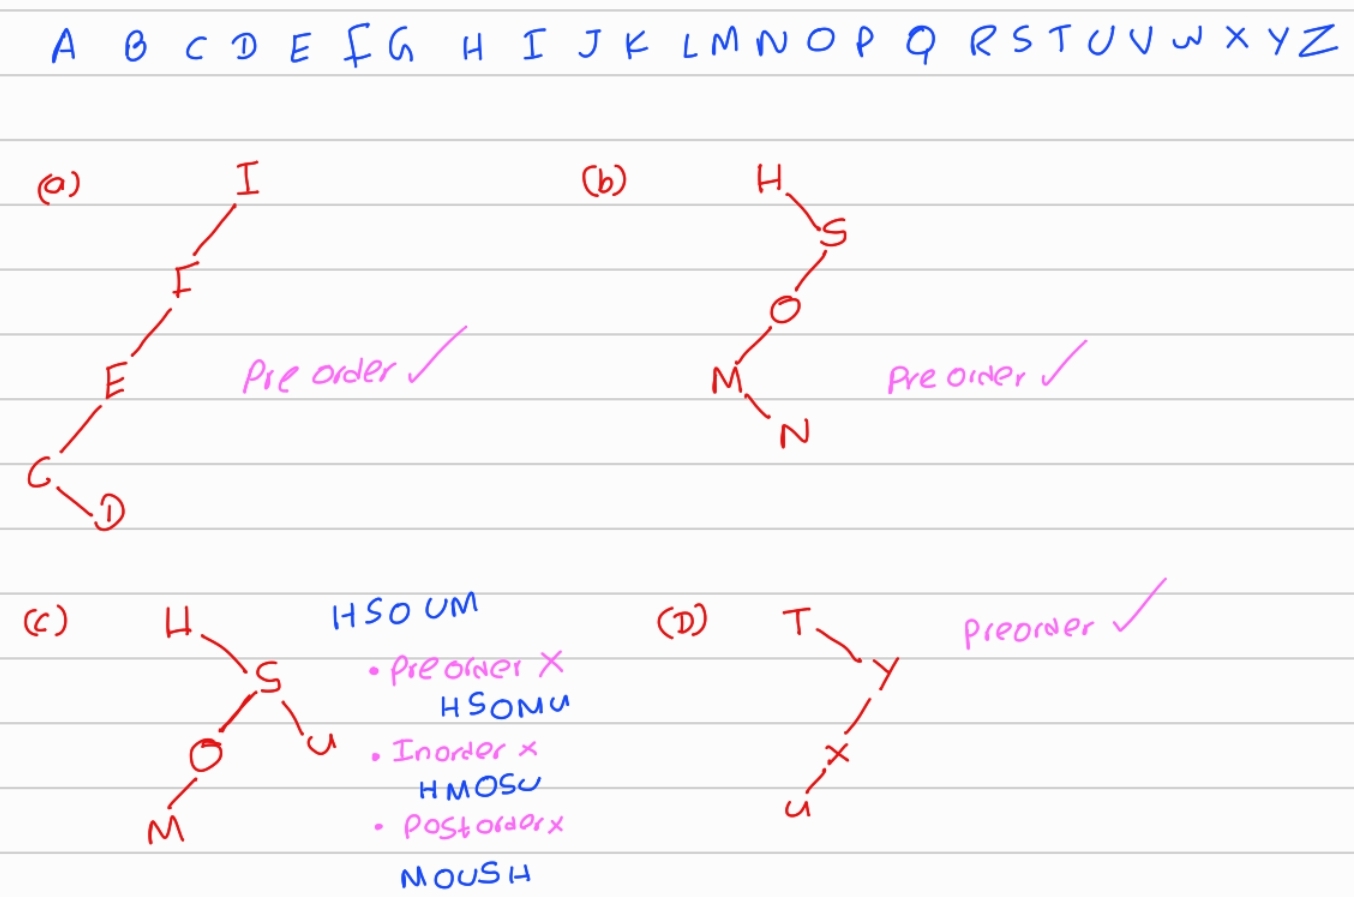 A B C D E F G H I J K L M N O P Q R S T U V W X Y Z
(a) I
F
E
C
D
Pre order ✓
(b) H
S
O
M
N
Pre order ✓
(c) H
S
O U
M
HSOUM
• Pre order X
HSOMU
• Inorder x
HMOSU
• Postorder x
MOUSH
(D) T
Y
X
U
Preorder ✓